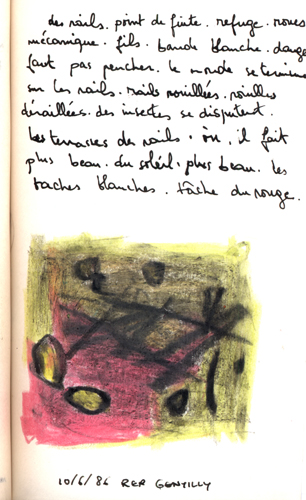 des rails. point de fuite. refuge. roues
mécanique. fils. bande blanche. dange
faut pas pencher. le monde se termine
sur les rails. rails rouillées. rouilles
déraillées. des insectes se disputent.
Les terrasses des rails. où, il fait
plus beau. du soleil. plus beau. les
taches blanches. tâche du rouge.
10/6/86 RER GENTILLY